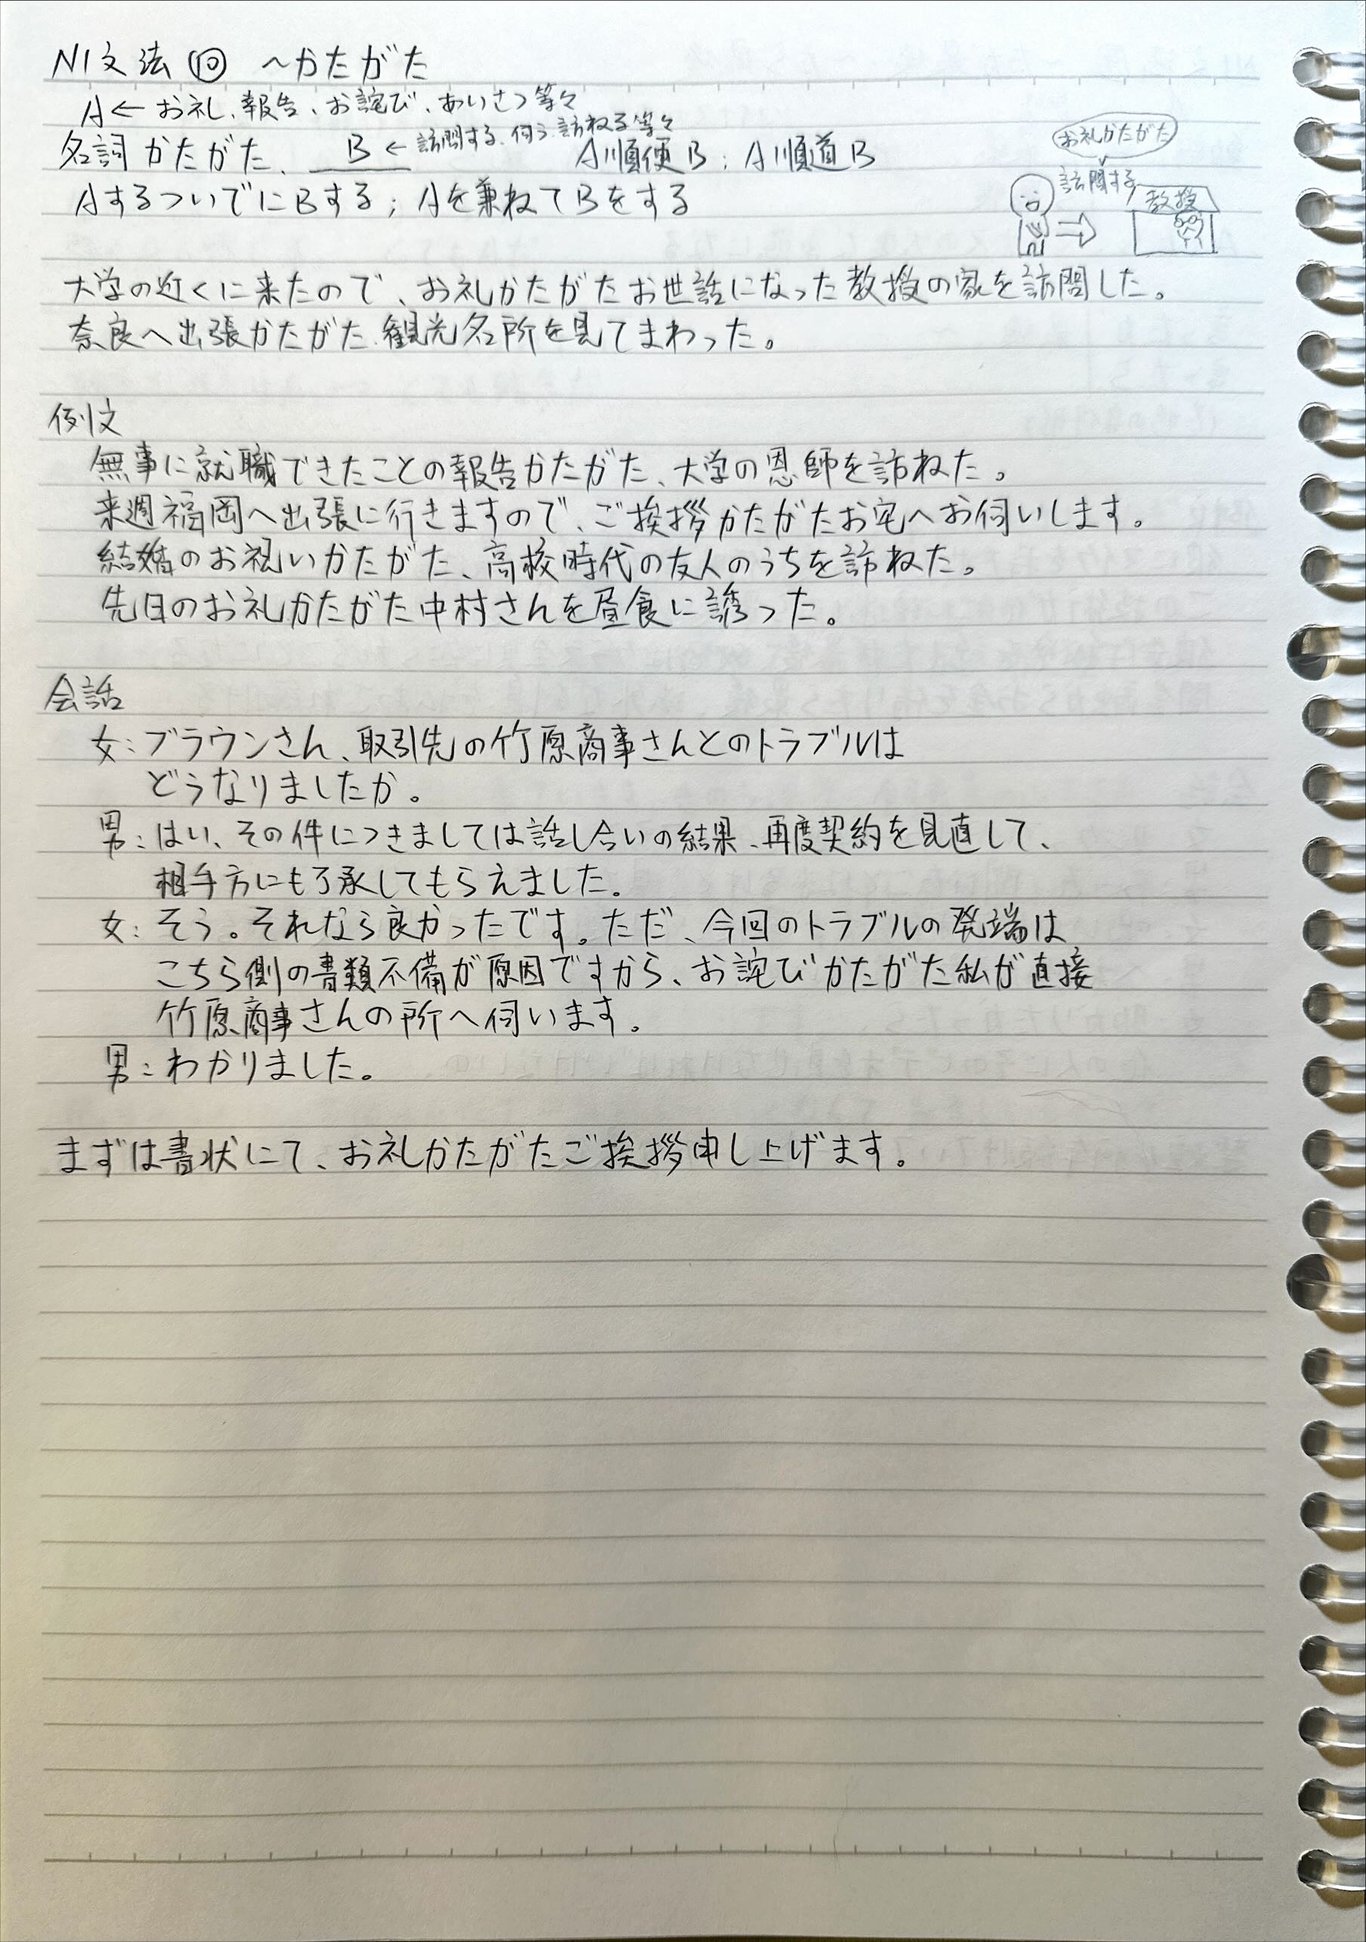 N1文法⑩ ～かたがた
A← お礼、報告、お詫び、あいさつ等々
名詞かたがた、 B ← 訪問する、伺う、訪ねる等々 A順便B；A順道B
Aするついでに Bする；Aを兼ねてBをする
お礼かたがた
訪問する
教授
大学の近くに来たので、お礼かたがたお世話になった教授の家を訪問した。
奈良へ出張かたがた、観光名所を見てまわった。
例文
無事に就職できたことの報告かたがた、大学の恩師を訪ねた。
来週福岡へ出張に行きますので、ご挨拶かたがたお宅へお伺いします。
結婚のお祝いかたがた、高校時代の友人のうちを訪ねた。
先日のお礼かたがた中村さんを昼食に誘った。
会話
女：ブラウンさん、取引先の竹原商事さんとのトラブルは
どうなりましたか。
男：はい、その件につきましては話し合いの結果、再度契約を見直して、
相手方にも了承してもらえました。
女：そう。それなら良かったです。ただ、今回のトラブルの発端は
こちら側の書類不備が原因ですから、お詫びかたがた私が直接
竹原商事さんの所へ伺います。
男：わかりました。
まずは書状にて、お礼かたがたご挨拶申し上げます。